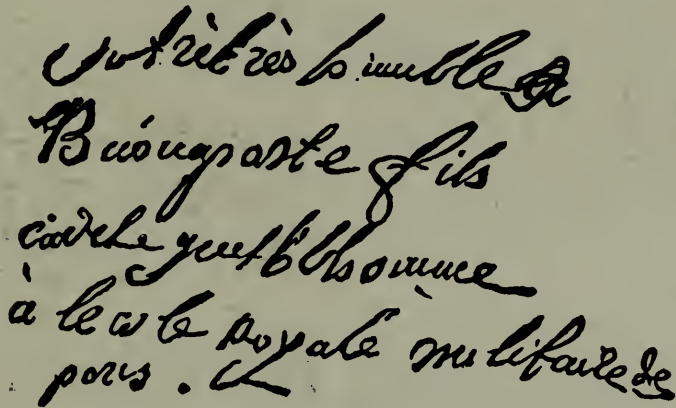 votre très humble et
Buonaparte fils
cadet gentilhomme
à lecole royale militaire de
paris.